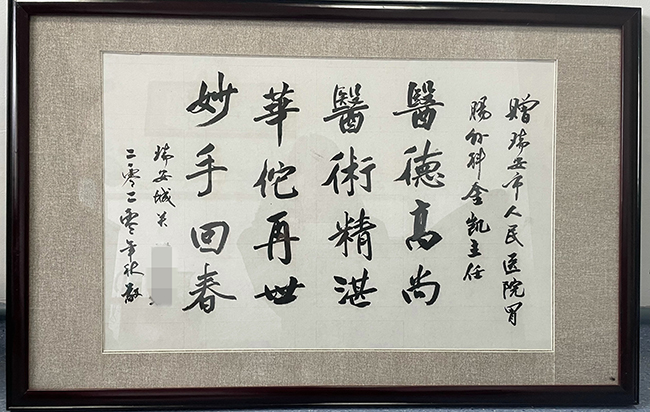 赠瑞安市人民医院胃
腸外科金凯主任
醫德高尚
醫術精湛
華佗再世
妙手回春
瑞安城关
二零二零年秋敬